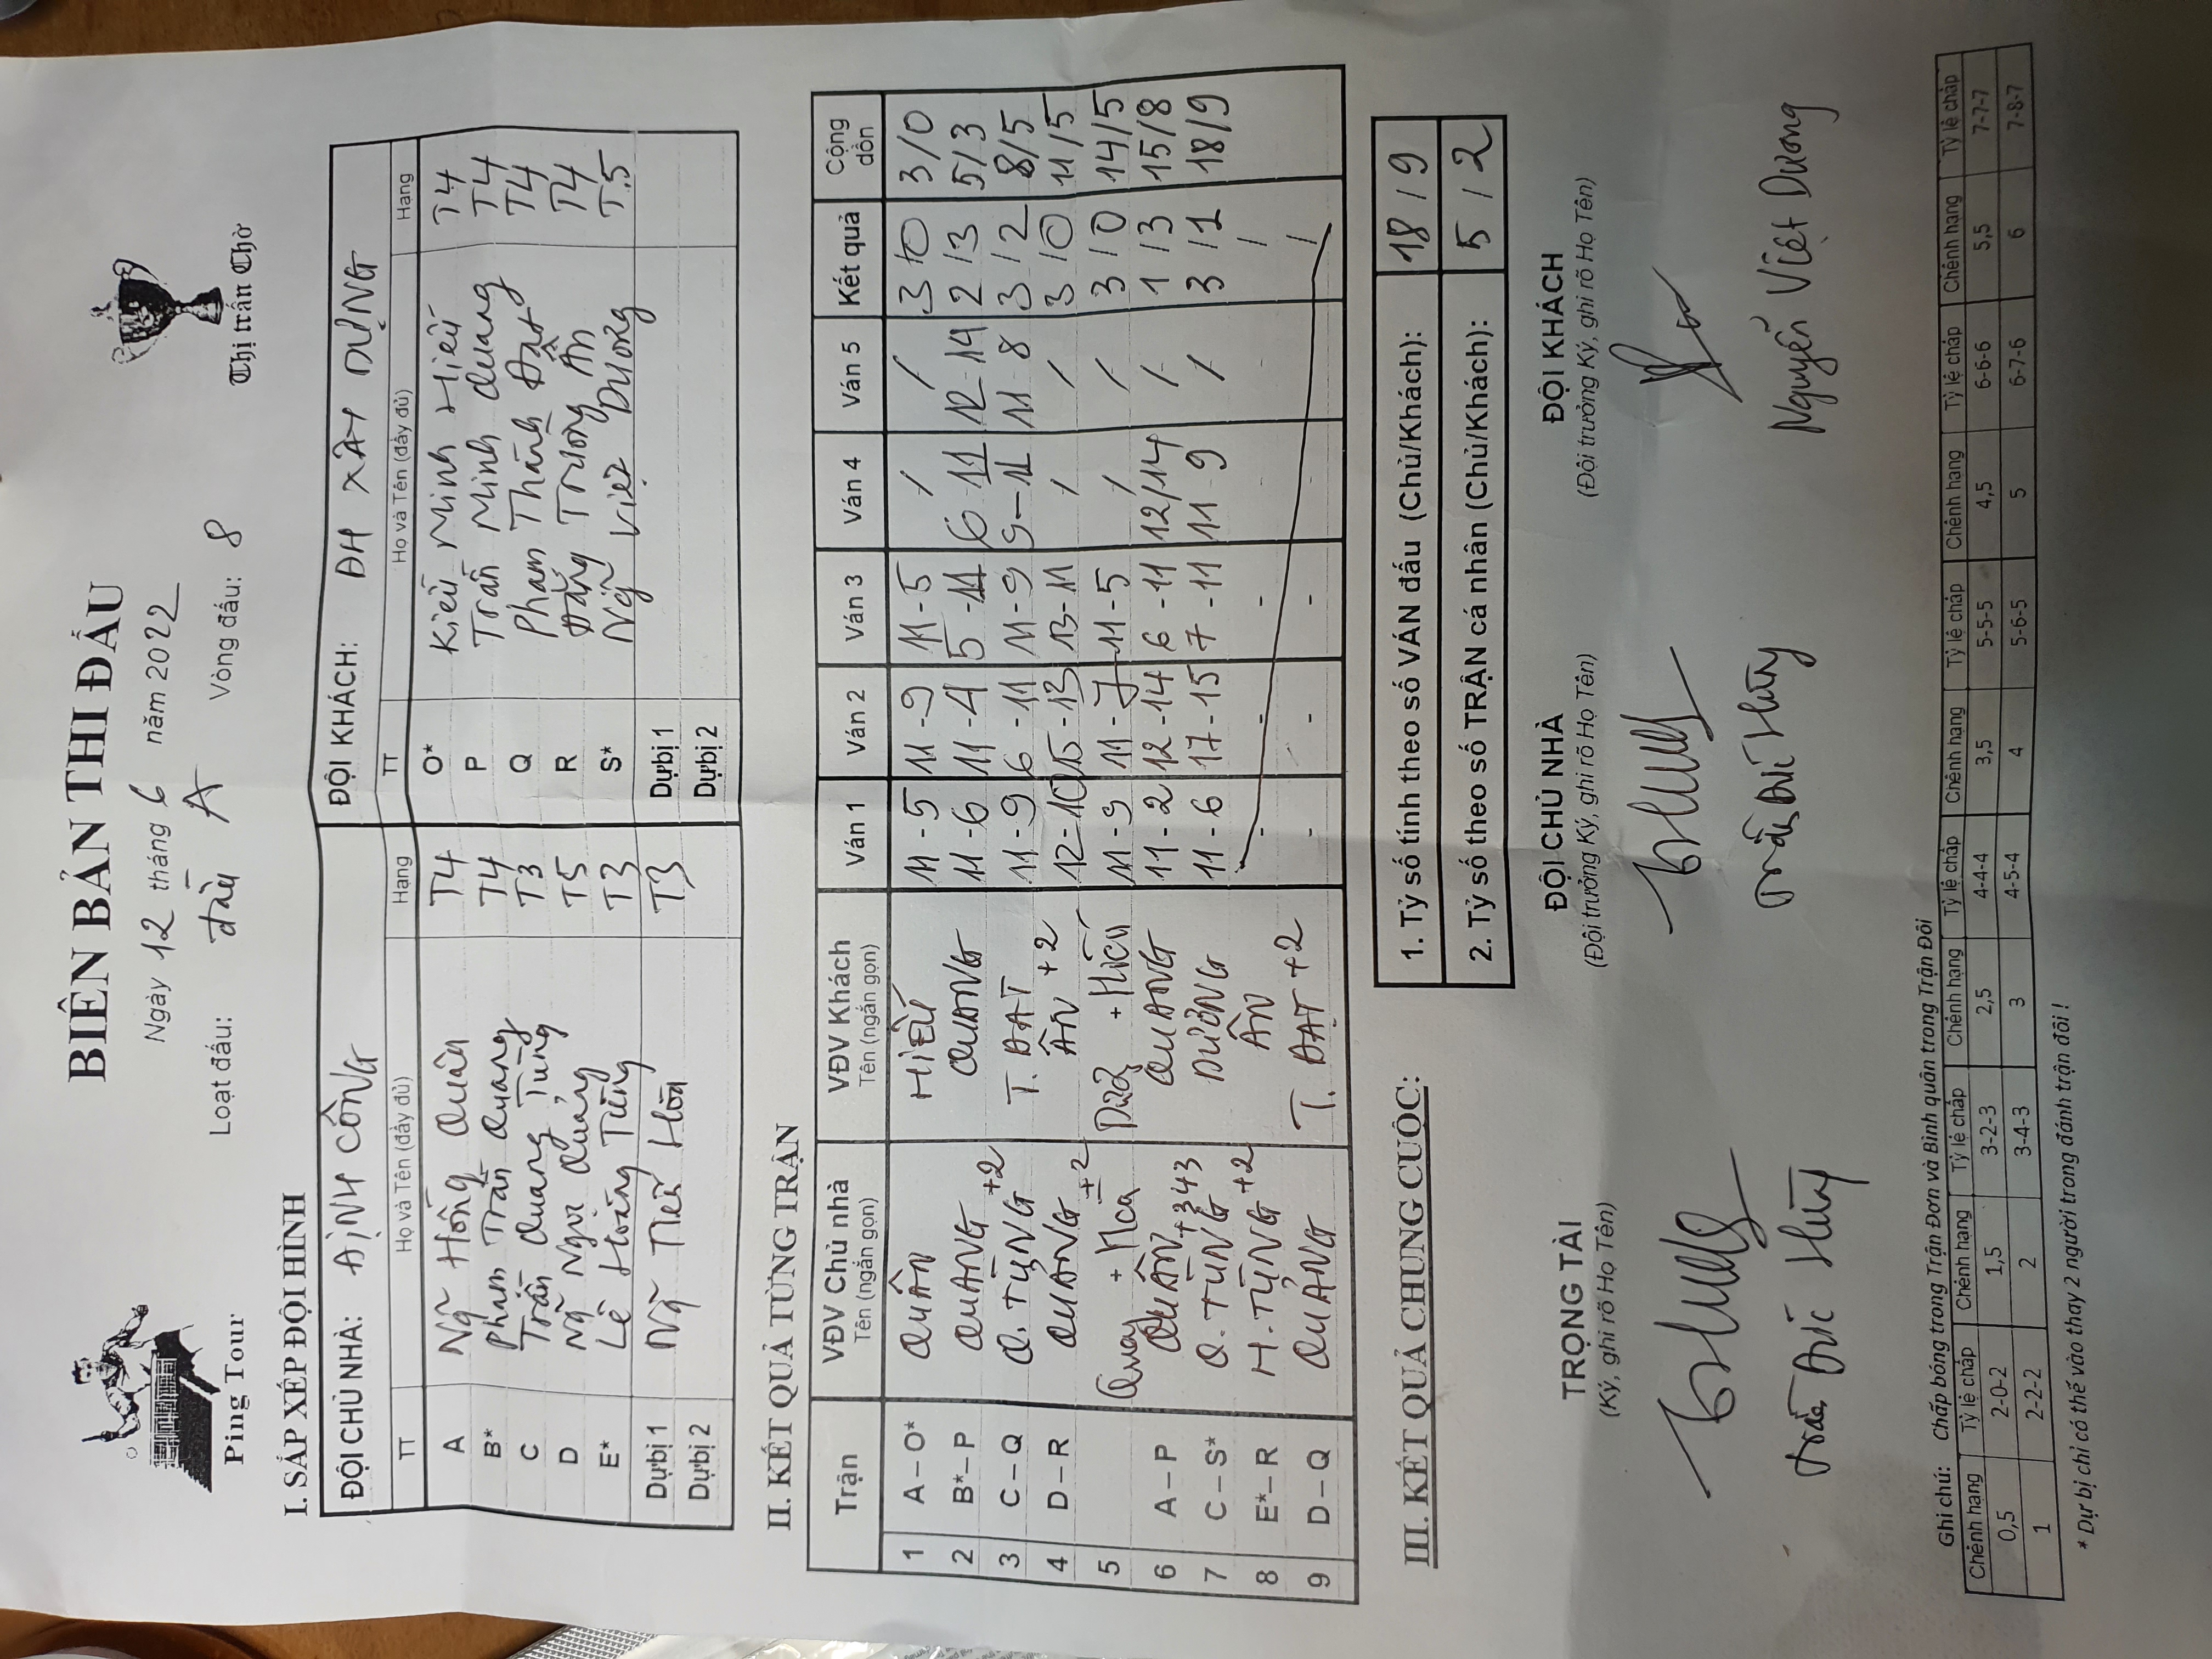 Ping Tour
BIÊN BẢN THI ĐẤU
Ngày 12 tháng 6 năm 2022
Loạt đấu: đầu A Vòng đấu: 8
Thị trấn Chờ
I. SẮP XẾP ĐỘI HÌNH
ĐỘI CHỦ NHÀ: ĐỊNH CÔNG ĐỘI KHÁCH: ĐH XÂY DỰNG
TT Họ và Tên (đầy đủ) Hạng TT Họ và Tên (đầy đủ) Hạng
A Ng~ Hồng Quân T4 O* Kiều Minh Hiếu T4
B* Phạm Trần Quang T4 P Trần Minh Quang T4
C Trần Quang Tùng T3 Q Phạm Thành Đạt T4
D Ng~ Ngọc Quảng T5 R Đặng Trường Ân T4
E* Lê Hoàng Tùng T3 S* Ng~ Việt Dương T.5
Dự bị 1 Ng~ Tiến Hòa T3 Dự bị 1
Dự bị 2 Dự bị 2
II. KẾT QUẢ TỪNG TRẬN
Trận VĐV Chủ nhà VĐV Khách Ván 1 Ván 2 Ván 3 Ván 4 Ván 5 Kết quả Cộng dồn
Tên (ngắn gọn) Tên (ngắn gọn)
1 A – O* QUÂN HIẾU 11 - 5 11 - 9 11 - 5 / / 3 / 0 3 / 0
2 B* – P QUANG QUANG 11 - 6 11 - 4 5 - 11 6 - 11 12 - 14 2 / 3 5 / 3
3 C – Q Q. TÙNG +2 T. ĐẠT 11 - 9 6 - 11 11 - 9 9 - 11 11 - 8 3 / 2 8 / 5
4 D – R QUẢNG +2 ÂN +2 12 - 10 15 - 13 13 - 11 / / 3 / 0 11 / 5
5 Quang + Hòa + Hiếu 11 - 9 11 - 7 11 - 5 / / 3 / 0 14 / 5
6 A – P QUÂN QUANG 11 - 2 12 - 14 6 - 11 12/14 / 1 / 3 15 / 8
7 C – S* Q. TÙNG +343 DƯƠNG 11 - 6 17 - 15 7 - 11 11 - 9 / 3 / 1 18 / 9
8 E* – R H. TÙNG +2 ÂN - - - /
9 D – Q QUẢNG T. ĐẠT +2 - - - /
III. KẾT QUẢ CHUNG CUỘC:
1. Tỷ số tính theo số VÁN đấu (Chủ/Khách): 18 / 9
2. Tỷ số theo số TRẬN cá nhân (Chủ/Khách): 5 / 2
TRỌNG TÀI ĐỘI CHỦ NHÀ ĐỘI KHÁCH
(Ký, ghi rõ Họ Tên) (Đội trưởng Ký, ghi rõ Họ Tên) (Đội trưởng Ký, ghi rõ Họ Tên)
Trần Đức Hùng Trần Đức Hùng Nguyễn Việt Dương
Ghi chú: Chấp bóng trong Trận Đơn và Bình quân trong Trận Đôi
Chênh hạng Tỷ lệ chấp Chênh hạng Tỷ lệ chấp Chênh hạng Tỷ lệ chấp Chênh hạng Tỷ lệ chấp Chênh hạng Tỷ lệ chấp Chênh hạng Tỷ lệ chấp
0,5 2-0-2 1,5 3-2-3 2,5 4-4-4 3,5 5-5-5 4,5 6-6-6 5,5 7-7-7
1 2-2-2 2 3-4-3 3 4-5-4 4 5-6-5 5 6-7-6 6 7-8-7
* Dự bị chỉ có thể vào thay 2 người trong đánh trận đôi !